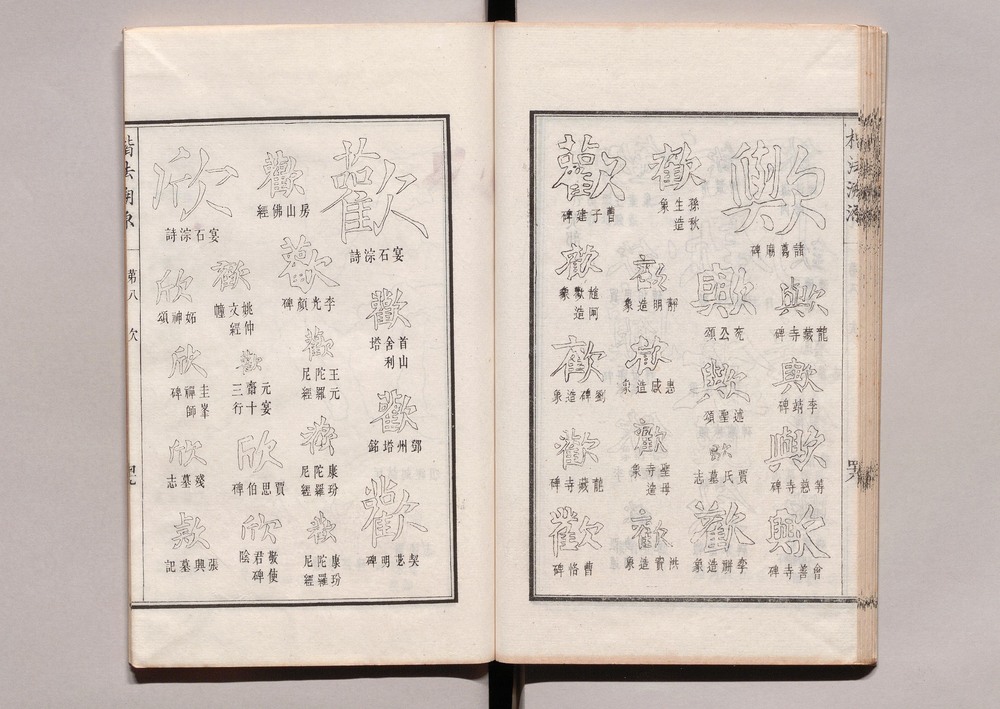 歟
諸葛廟碑
歟
龍藏寺碑
歟
李靖碑
歟
等慈寺碑
歟
會善寺碑
歡
孫秋
生造
象
歟
兖公頌
歟
述聖頌
歟
賈氏墓志
歡
李騈造象
歡
曹子建碑
歡
靜明造象
歡
惠感造象
歡
聖母
寺造
象
歡
洪寶造象
歡
造
象
歡
劉碑造象
歡
龍藏寺碑
歡
曹恪碑
歡
宴石淙詩
歡
首山
舍利
塔
歡
鄧州塔銘
歡
契苾明碑
歡
房山佛經
歡
李光顏碑
歡
王元
陀羅
尼經
歡
康玢
陀羅
尼經
歡
康玢
陀羅
尼經
歡
姚仲
文經
幢
歡
元宴
齋十
三行
欣
賈思伯碑
欣
敬使
君碑
陰
欣
宴石淙詩
欣
妬神頌
欣
圭峯
禪師
碑
欣
墓志
欣
張興墓記
楷法溯源
第八
欠